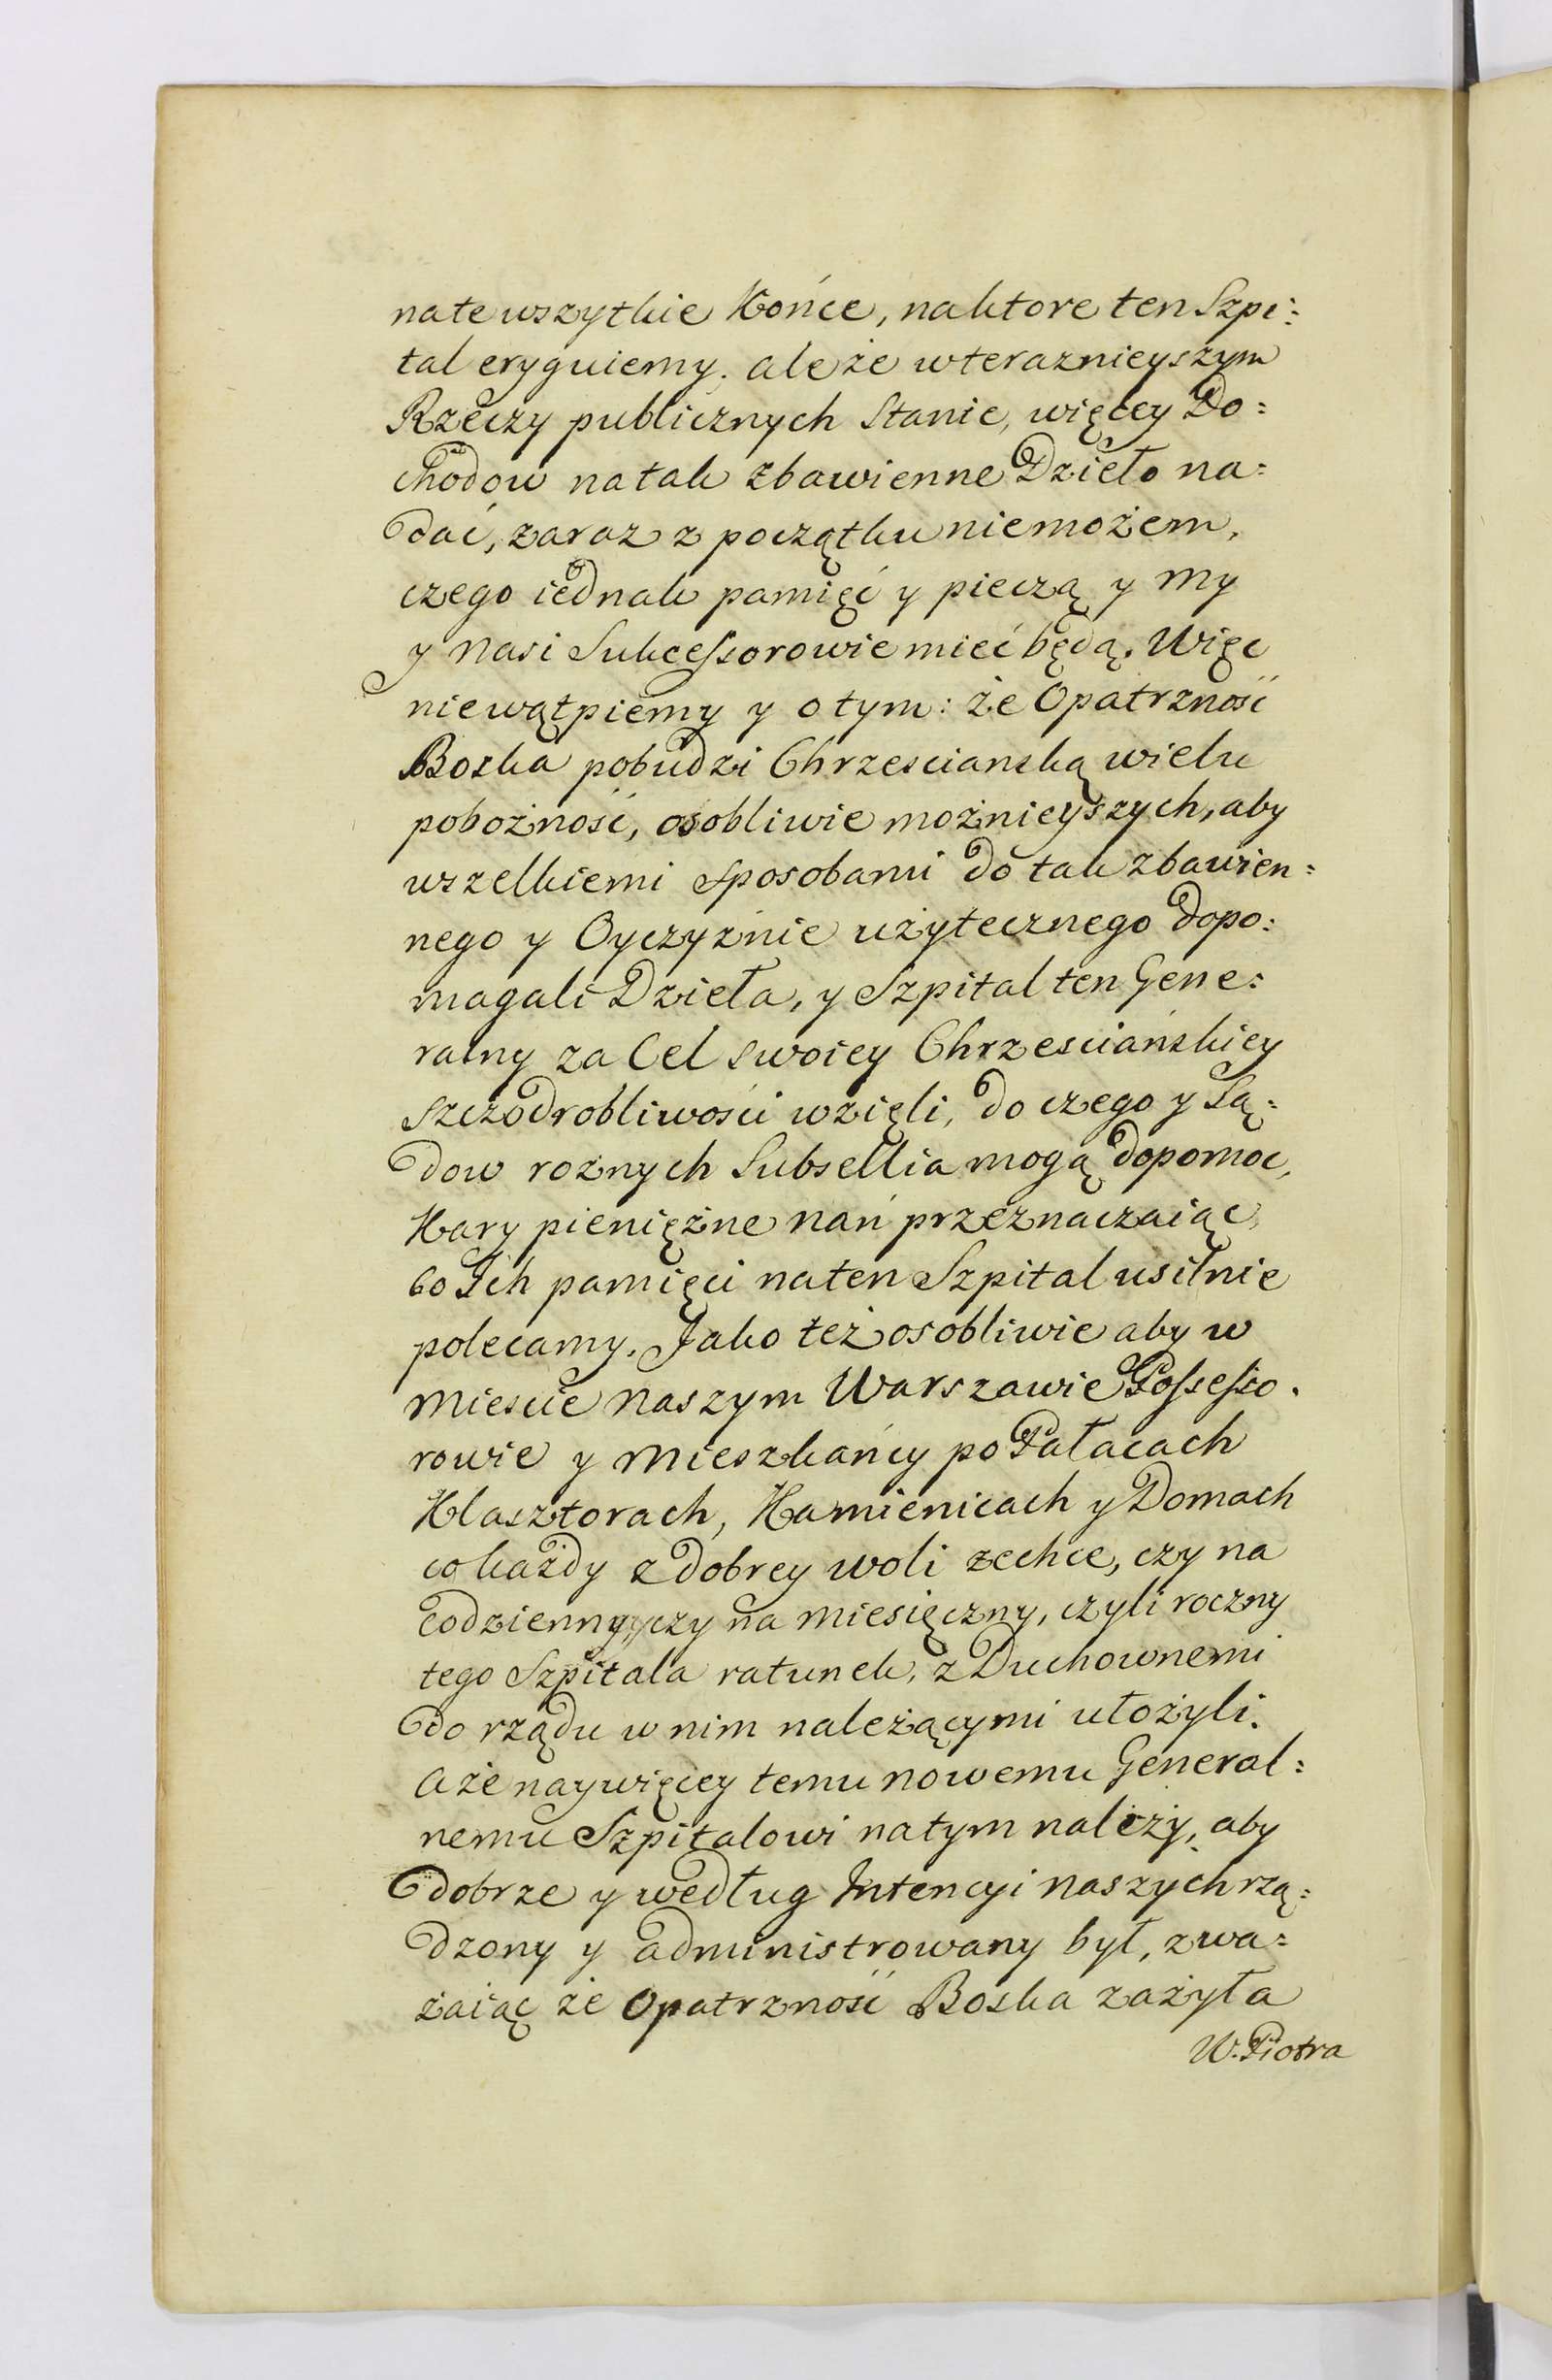 nate wszytkie Końce, naktore ten Szpi:
tal eryguiemy. ale że wteraznieyszym
Rzeczy publicznych Stanie, więcey Do:
chodow natak zbawienne Dzieło na:
dać, zaraz z początku niemożem,
czego iednak pamięć y pieczą y My
y Nasi Sukceſsorowie mieć będą. Więc
niewątpiemy y otym: że Opatrzność
Boska pobudzi Chrzescianską wielu
pobożność, osobliwie możnieyszych, aby
wszelkiemi sposobami do tak zbawien:
nego y Oyczyznie użytecznego dopo:
magali Dzieła, y Szpital ten Gene:
ralny za Cel swoiey Chrzesciańskiey
szczodrobliwości wzięli, do czego y Są:
dow rożnych Subsellia mogą dopomoc,
Kary pieniężne nań przeznaczaiąc,
co Ich pamięci naten Szpital usilnie
polecamy. Jako też osobliwie aby w
Miescie Naszym Warszawie Poſseſso.
rowie y Mieszkańcy po Pałacach
Klasztorach, Kamienicach y Domach
co każdy z dobrey woli zechce, czy na
codzienny, czy na miesięczny, czyli roczny
tego Szpitala ratunek, z Duchownemi
do rządu w nim należącymi ułożyli.
A że naywięcey temu nowemu General:
nemu Szpitalowi natym należy, aby
dobrze y według Intencyi Naszych rzą:
dzony y administrowany był, zwa:
żaiąc że Opatrzność Boska zażyła
W. Piotra